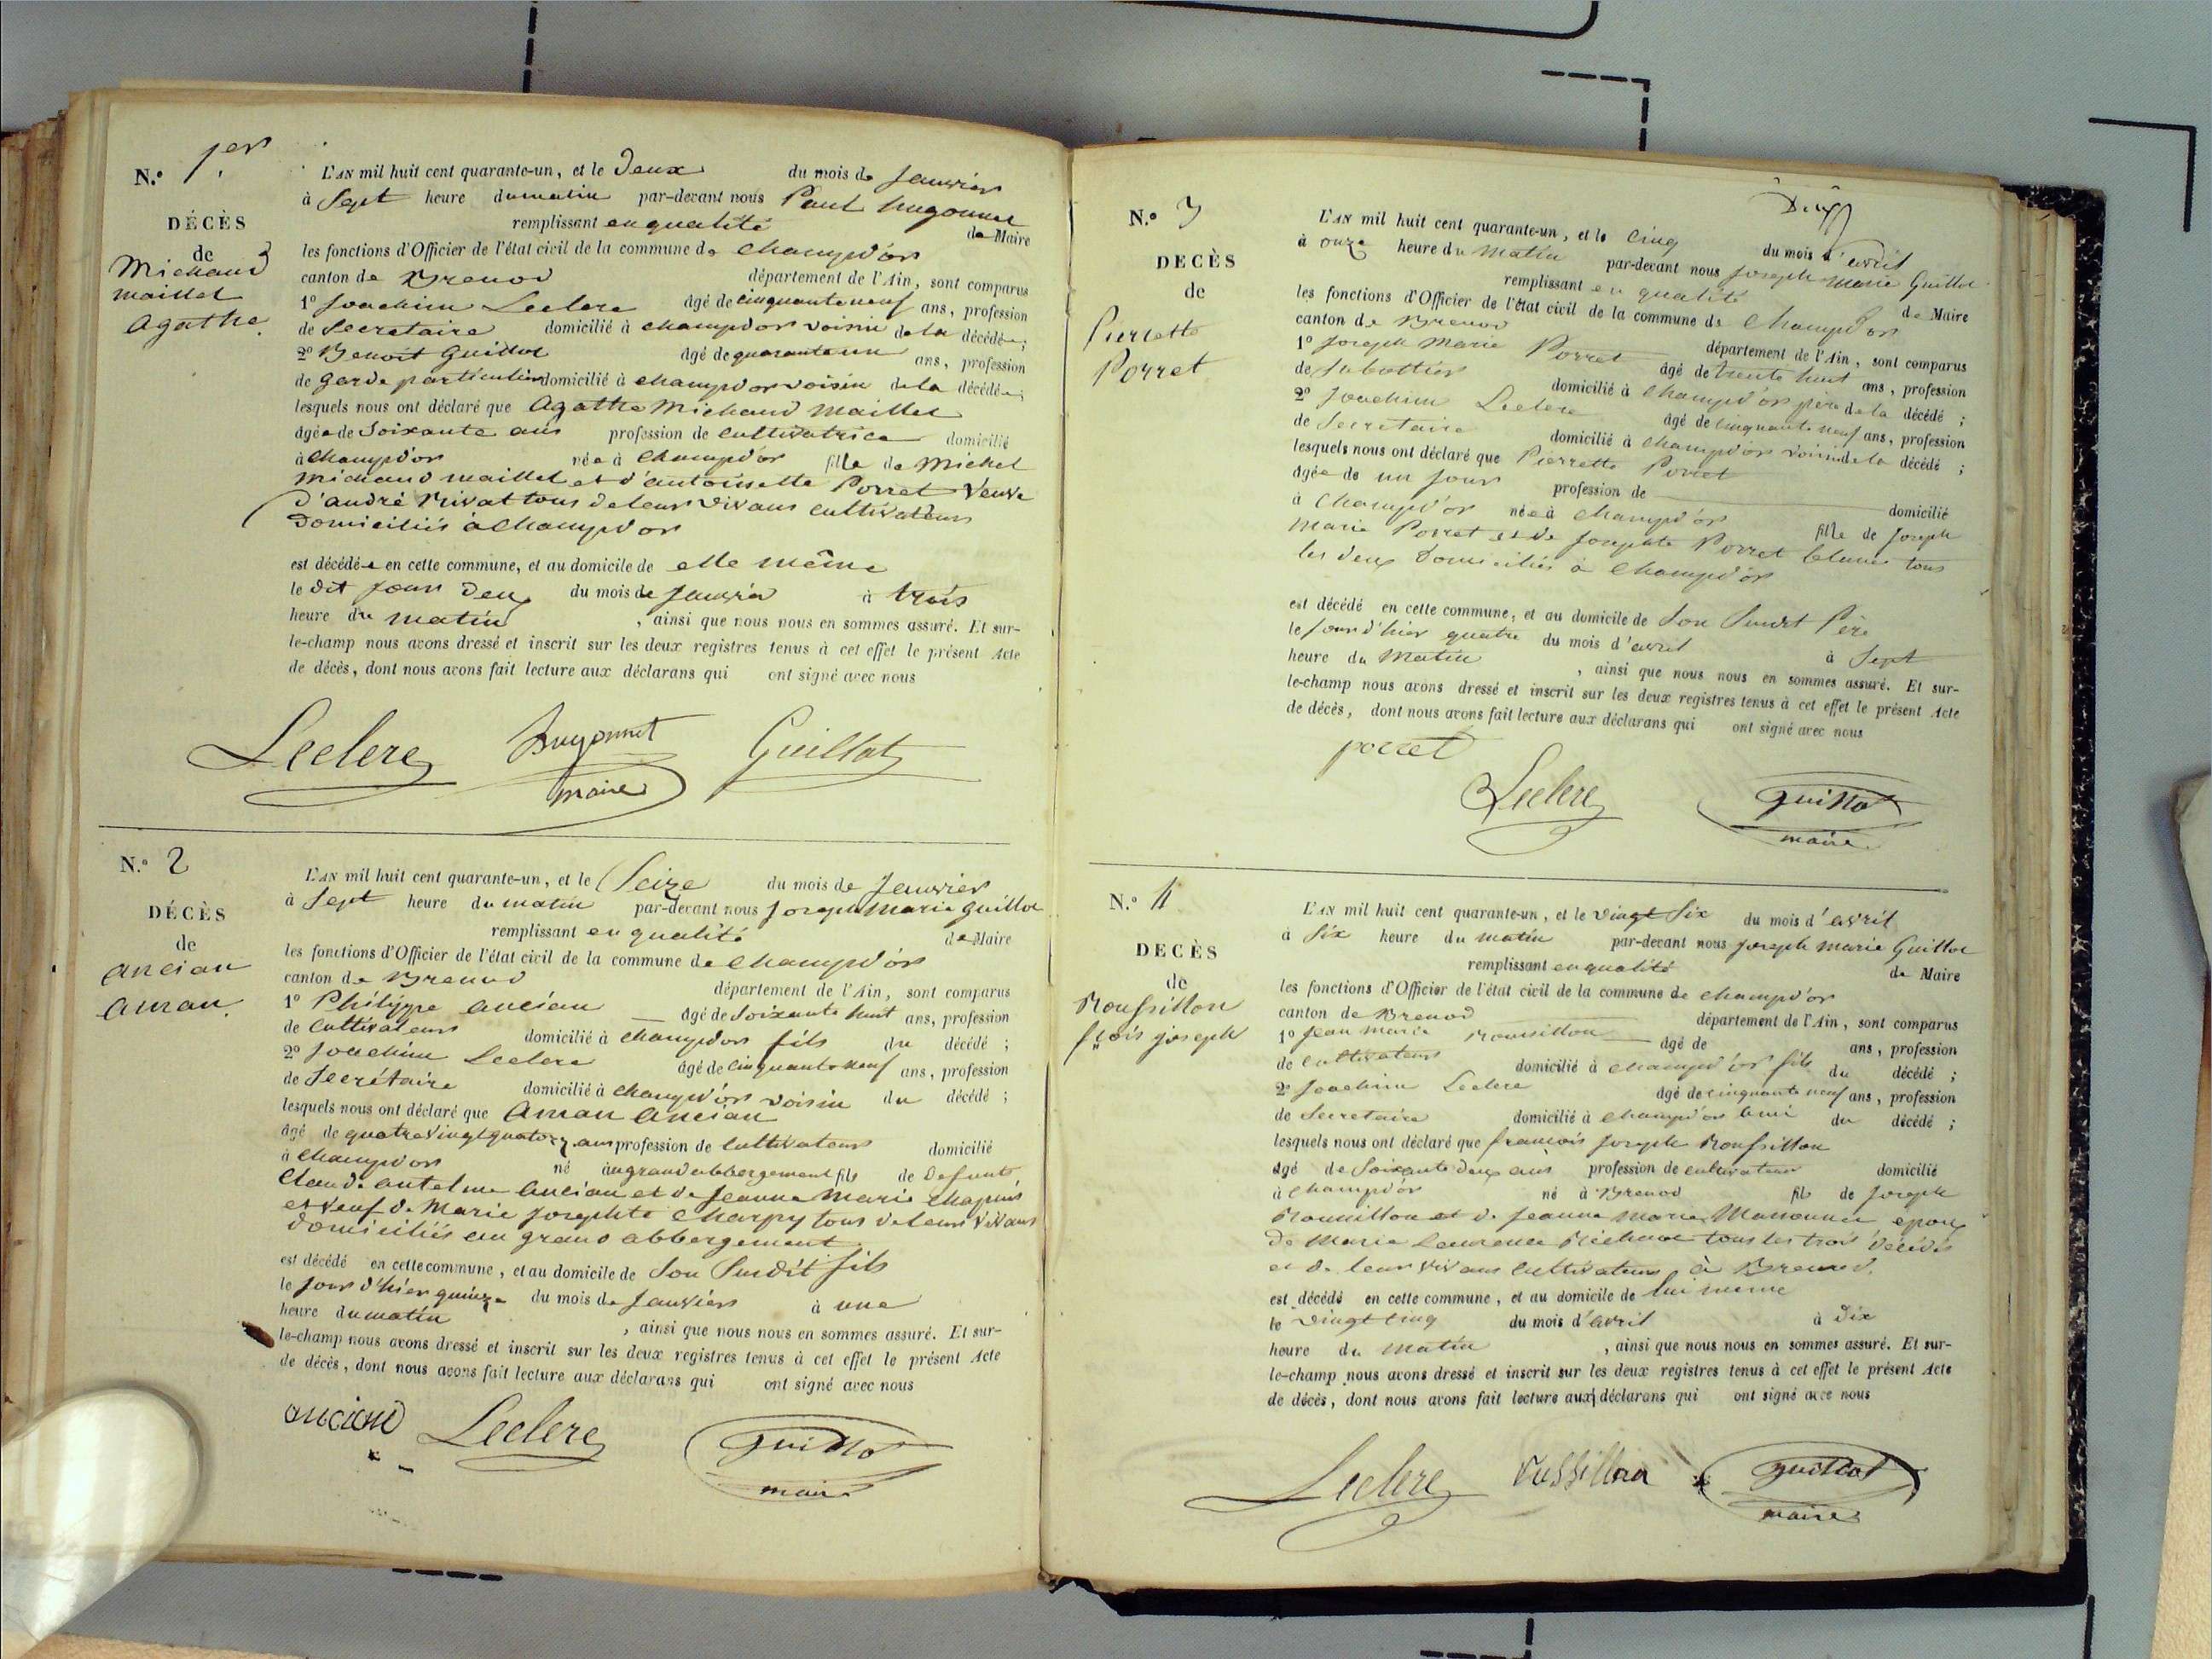 N.° 1er
DÉCÈS
de
Michaud
maillet
agathe.
L'AN mil huit cent quarante-un, et le Deux du mois de Janvier
à Sept heure du matin par-devant nous Paul hugonnet
remplissant en qualité de Maire
les fonctions d'Officier de l'état civil de la commune de Champd'or
canton de Brenod département de l'Ain, sont comparus
1° Joachim Leclerc âgé de cinquante neuf ans, profession
de Secretaire domicilié à champd'or voisin de la décédée ;
2° Benoit Guillot âgé de quarante un ans, profession
de garde particulier domicilié à champd'or voisin de la décédée ;
lesquels nous ont déclaré que Agathe Michaud Maillet
âgée de Soixante ans profession de Cultivatrice domicilié
à Champd'or née à Champd'or fille de Michel
Michaud maillet et d'antoinette Porret Veuve
D'andré Nivat tous de leur vivans cultivateurs
Domiciliés à Champd'or
est décédée en cette commune, et au domicile de elle même
le dit jour Deux du mois de Janvier à trois
heure du matin , ainsi que nous nous en sommes assuré. Et sur-
le-champ nous avons dressé et inscrit sur les deux registres tenus à cet effet le présent Acte
de décès, dont nous avons fait lecture aux déclarans qui ont signé avec nous
Leclerc hugonnet Guillot
maire
N.° 2
DÉCÈS
de
ancian
aman.
L'AN mil huit cent quarante-un, et le Seize du mois de Janvier
à Sept heure du matin par-devant nous Joseph Marie Guillot
remplissant en qualité de Maire
les fonctions d'Officier de l'état civil de la commune de Champd'or
canton de Brenod département de l'Ain, sont comparus
1° Philippe ancian âgé de Soixante huit ans, profession
de Cultivateur domicilié à champd'or fils du décédé ;
2° Joachim Leclerc âgé de Cinquante neuf ans, profession
de Secrétaire domicilié à Champd'or voisin du décédé ;
lesquels nous ont déclaré que Aman Ancian
âgé de quatre vingt quatorze ans profession de Cultivateur domicilié
à Champd'or né au grand abbergement fils de Defunt
Claude antelme ancian et de Jeanne Marie Chapuis
et Veuf de Marie Josephte Charpy tous de leurs Vivans
Domiciliés au grand abbergement
est décédé en cette commune, et au domicile de Son Susdit fils
le jour d'hier quinze du mois de Janvier à une
heure du matin , ainsi que nous nous en sommes assuré. Et sur-
le-champ nous avons dressé et inscrit sur les deux registres tenus à cet effet le présent Acte
de décès, dont nous avons fait lecture aux déclarans qui ont signé avec nous
anciand Leclerc Guillot
maire
N.° 3
DECÈS
de
Pierrette
Porret
L'AN mil huit cent quarante-un, et le Cinq du mois d'avril
à onze heure du Matin par-devant nous Joseph Marie Guillot
remplissant en qualité de Maire
les fonctions d'Officier de l'état civil de la commune de Champd'or
canton de Brenod département de l'Ain, sont comparus
1° Joseph Marie Porret âgé de trente huit ans, profession
de Sabottier domicilié à Champd'or père de la décédé ;
2° Joachim Leclerc âgé de Cinquante neuf ans, profession
de Secretaire domicilié à Champd'or voisin de la décédé ;
lesquels nous ont déclaré que Pierrette Porret
âgée de un jour profession de domicilié
à Champd'or née à Champd'or fille de Joseph
Marie Porret et de Josephte Porret blanc tous
les deux Domiciliés à Champd'or
est décédé en cette commune, et au domicile de Son Susdit Père
le jour d'hier quatre du mois d'avril à Sept
heure du Matin , ainsi que nous nous en sommes assuré. Et sur-
le-champ nous avons dressé et inscrit sur les deux registres tenus à cet effet le présent Acte
de décès, dont nous avons fait lecture aux déclarans qui ont signé avec nous
porret
Leclerc Guillot
maire
N.° 4
DECÈS
de
Roussillon
fcois joseph
L'AN mil huit cent quarante-un, et le vingt Six du mois d'avril
à Six heure du matin par-devant nous joseph marie Guillot
remplissant en qualité de Maire
les fonctions d'Officier de l'état civil de la commune de Champd'or
canton de Brenod département de l'Ain, sont comparus
1° Jean Marie Roussillon âgé de ans, profession
de Cultivateur domicilié à champd'or fils du décédé ;
2° Joachim Leclerc âgé de cinquante neuf ans, profession
de Secretaire domicilié à Champd'or ami du décédé ;
lesquels nous ont déclaré que francois Joseph Roussillon
âgé de Soixante deux ans profession de cultivateur domicilié
à Champd'or né à Brenod fils de Joseph
Roussillon et de Jeanne Marie epoux
De Marie Laurence tous les trois Décédés
et de leur Vivans Cultivateurs à Brenod.
est décédé en cette commune, et au domicile de lui meme
le vingt cinq du mois d'avril à dix
heure du matin , ainsi que nous nous en sommes assuré. Et sur-
le-champ nous avons dressé et inscrit sur les deux registres tenus à cet effet le présent Acte
de décès, dont nous avons fait lecture aux déclarans qui ont signé avec nous
Leclerc Guillot
maire